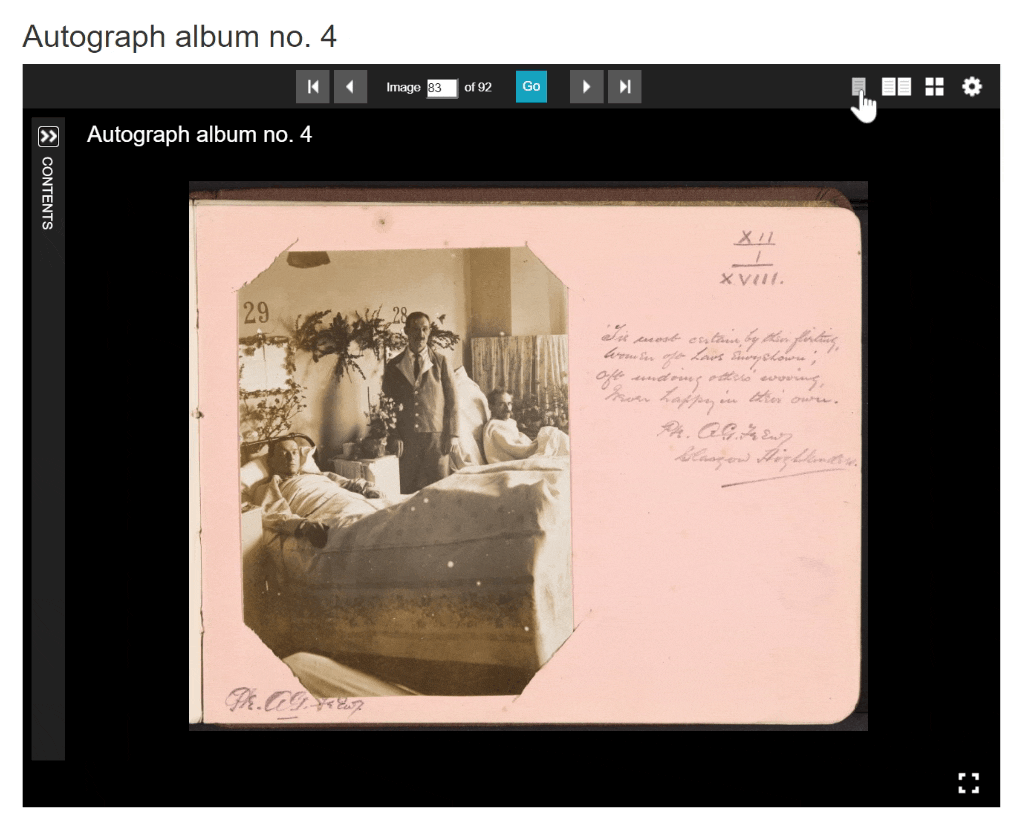 Autograph album no. 4
Image 83 of 92 Go
CONTENTS
Autograph album no. 4
29
28
XII
I
XVIII.
'Tis most certain, by their flirting,
Women oft have Envy shown;
Oft undoing others' wooing,
Never happy in their own.
Pte. A.G.
Glasgow Highlanders.
Pte. A.G.